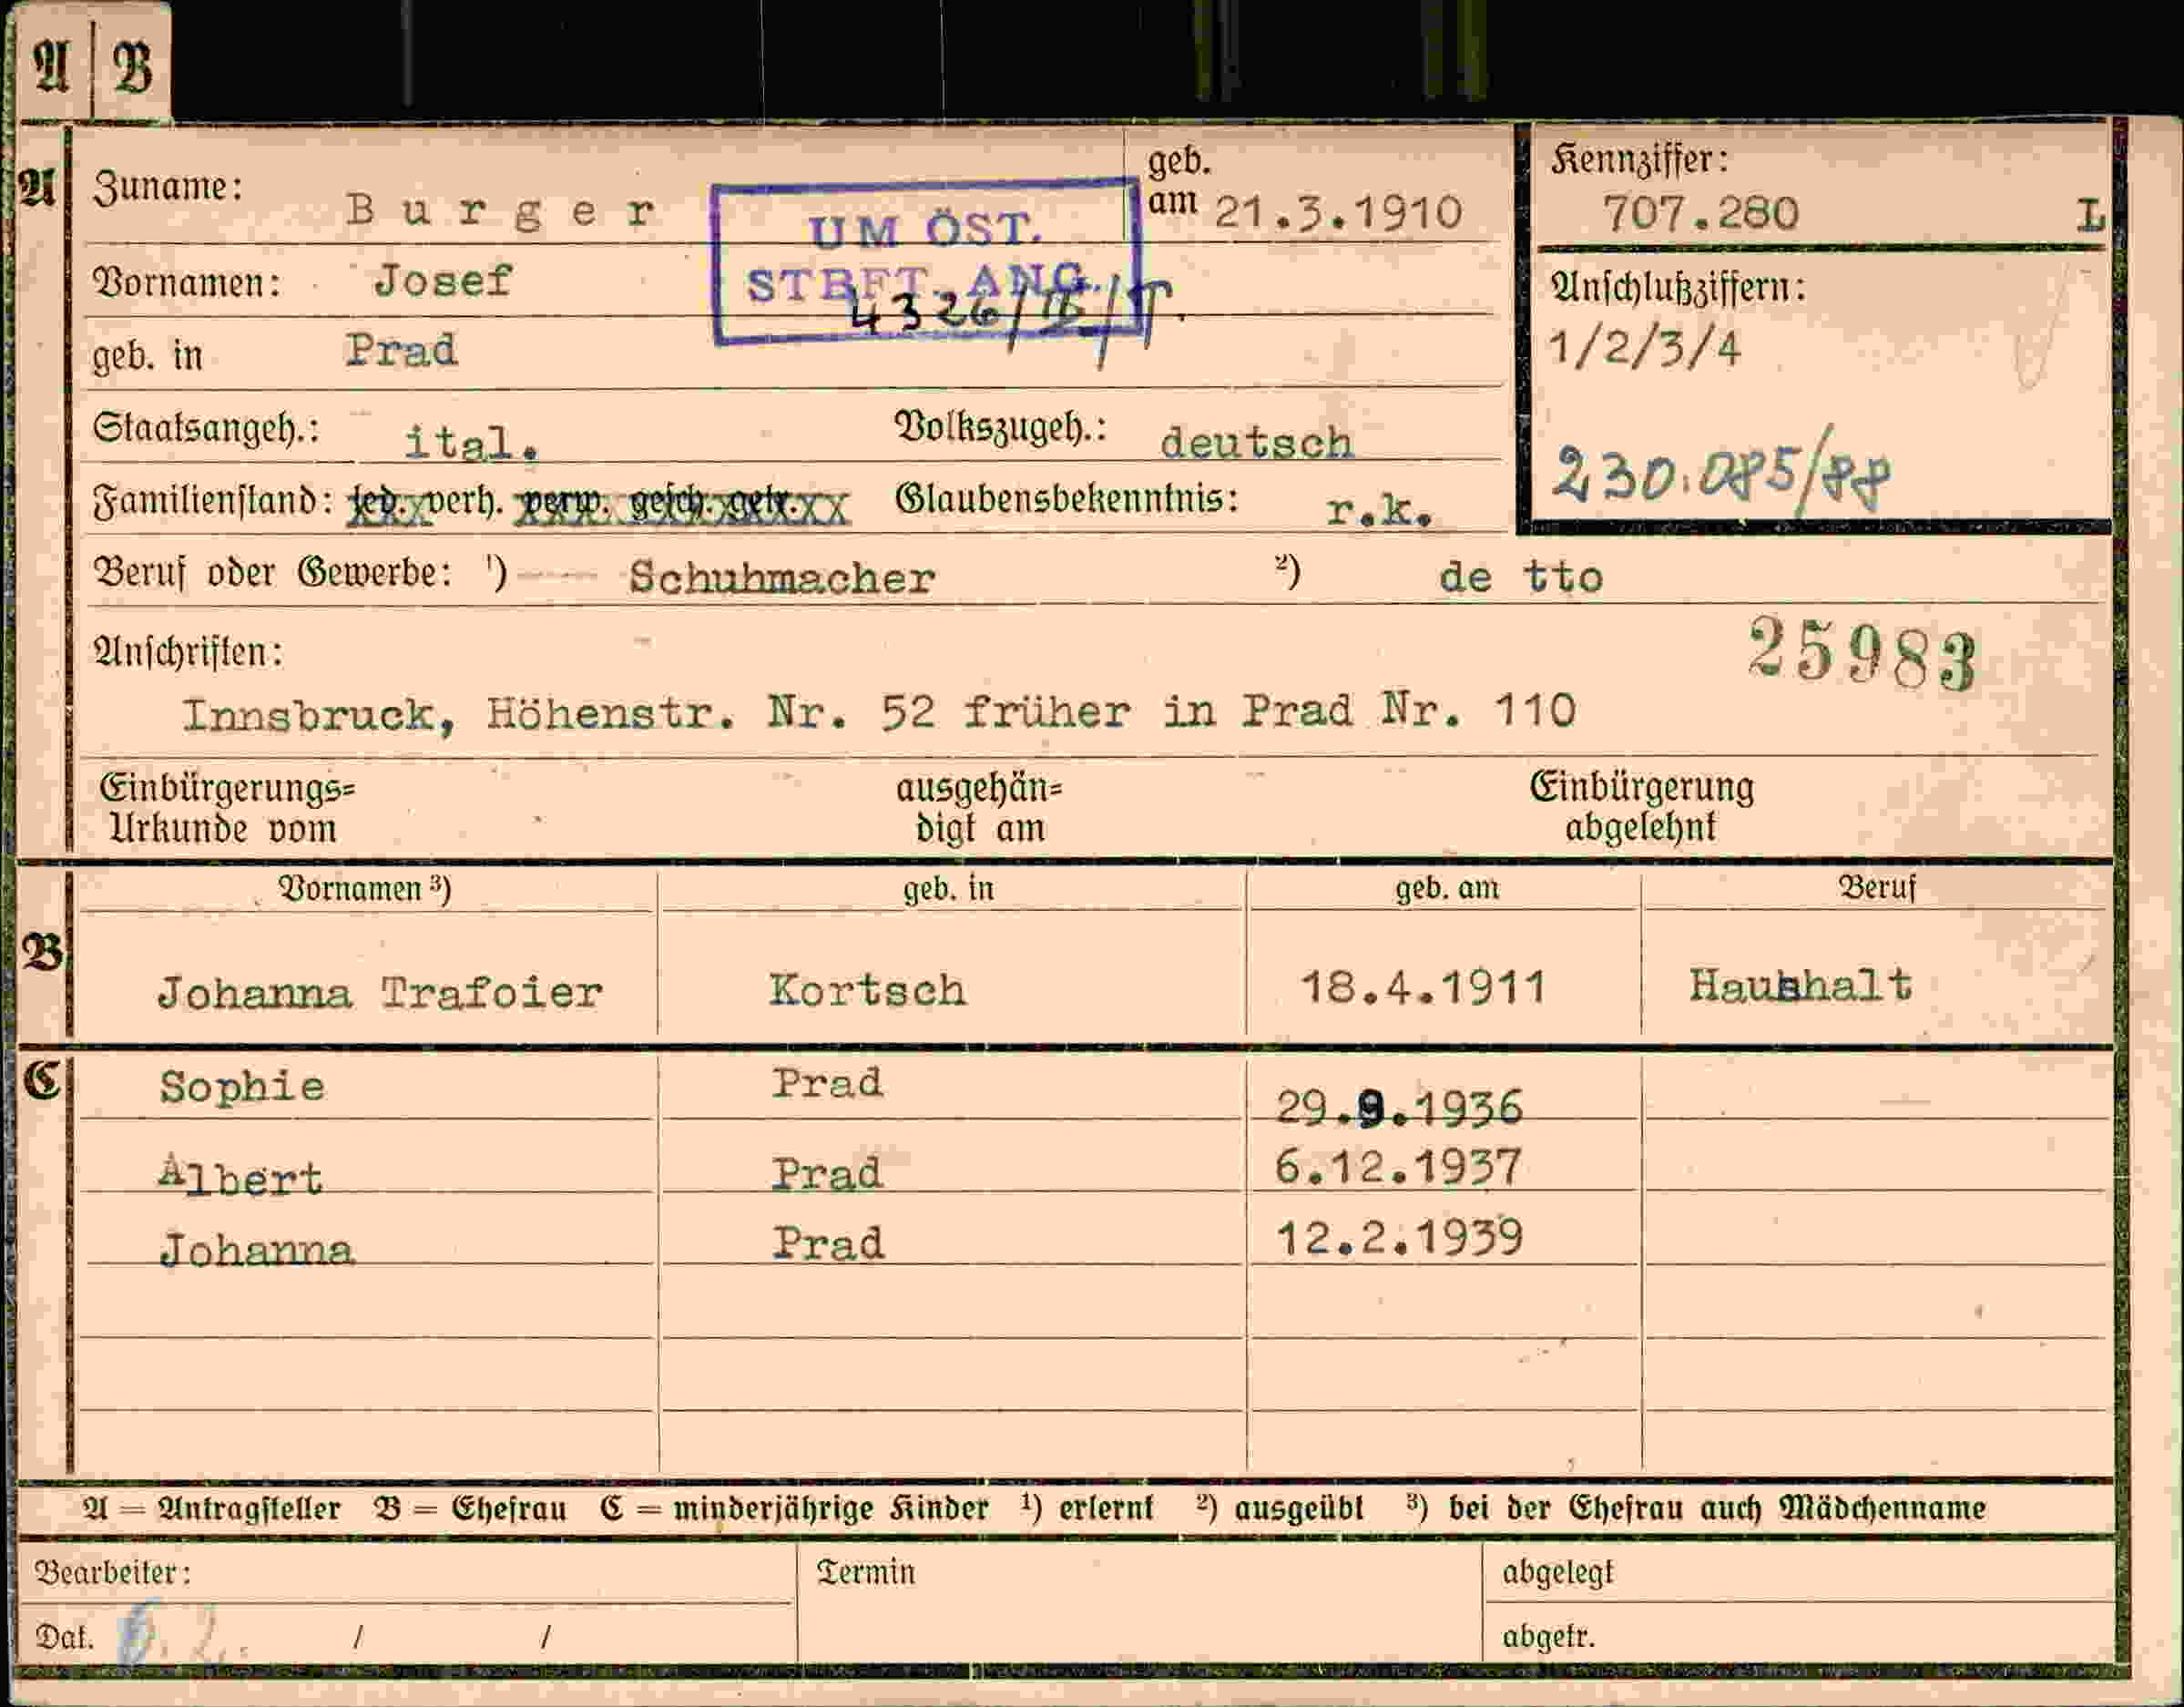 A B
A Zuname: Burger geb. am 21.3.1910 Kennziffer: 707.280 L
UM ÖST.
STBFT. ANG.
4326/II/T.
Vornamen: Josef Anschlußziffern:
geb. in Prad 1/2/3/4
Staatsangeh.: ital. Volkszugeh.: deutsch
230.085/88
Familienstand: led. verh. verw. gesch. getr. Glaubensbekenntnis: r.k.
Beruf oder Gewerbe: ¹) Schuhmacher ²) de tto
Anschriften: 25983
Innsbruck, Höhenstr. Nr. 52 früher in Prad Nr. 110
Einbürgerungs= ausgehän= Einbürgerung
Urkunde vom digt am abgelehnt
Vornamen ³) geb. in geb. am Beruf
B Johanna Trafoier Kortsch 18.4.1911 Haushalt
C Sophie Prad 29.9.1936
Albert Prad 6.12.1937
Johanna Prad 12.2.1939
A = Antragsteller B = Ehefrau C = minderjährige Kinder ¹) erlernt ²) ausgeübt ³) bei der Ehefrau auch Mädchenname
Bearbeiter: Termin abgelegt
Dat. 6.2. / / abgetr.